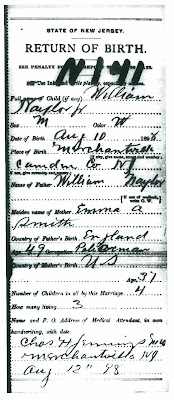 STATE OF NEW JERSEY.
RETURN OF BIRTH.
N141
Full name of Child (if any) William
Naylor Jr
Sex M Color W
Date of Birth Aug 10 189
Place of Birth, Merchantville
Camden Co NJ
Name of Father William Naylor
Maiden name of Mother Emma A
Smith
Country of Father's Birth, England
Age, 49 Occupation, Policeman
Country of Mother's Birth, US
Age, 37
Number of Children in all by this Marriage, 4
How many living, 3
Name and P. O. Address of Medical Attendant, in own
handwriting, with date
Chas H Jennings MD
Merchantville NJ
Aug 12th 98